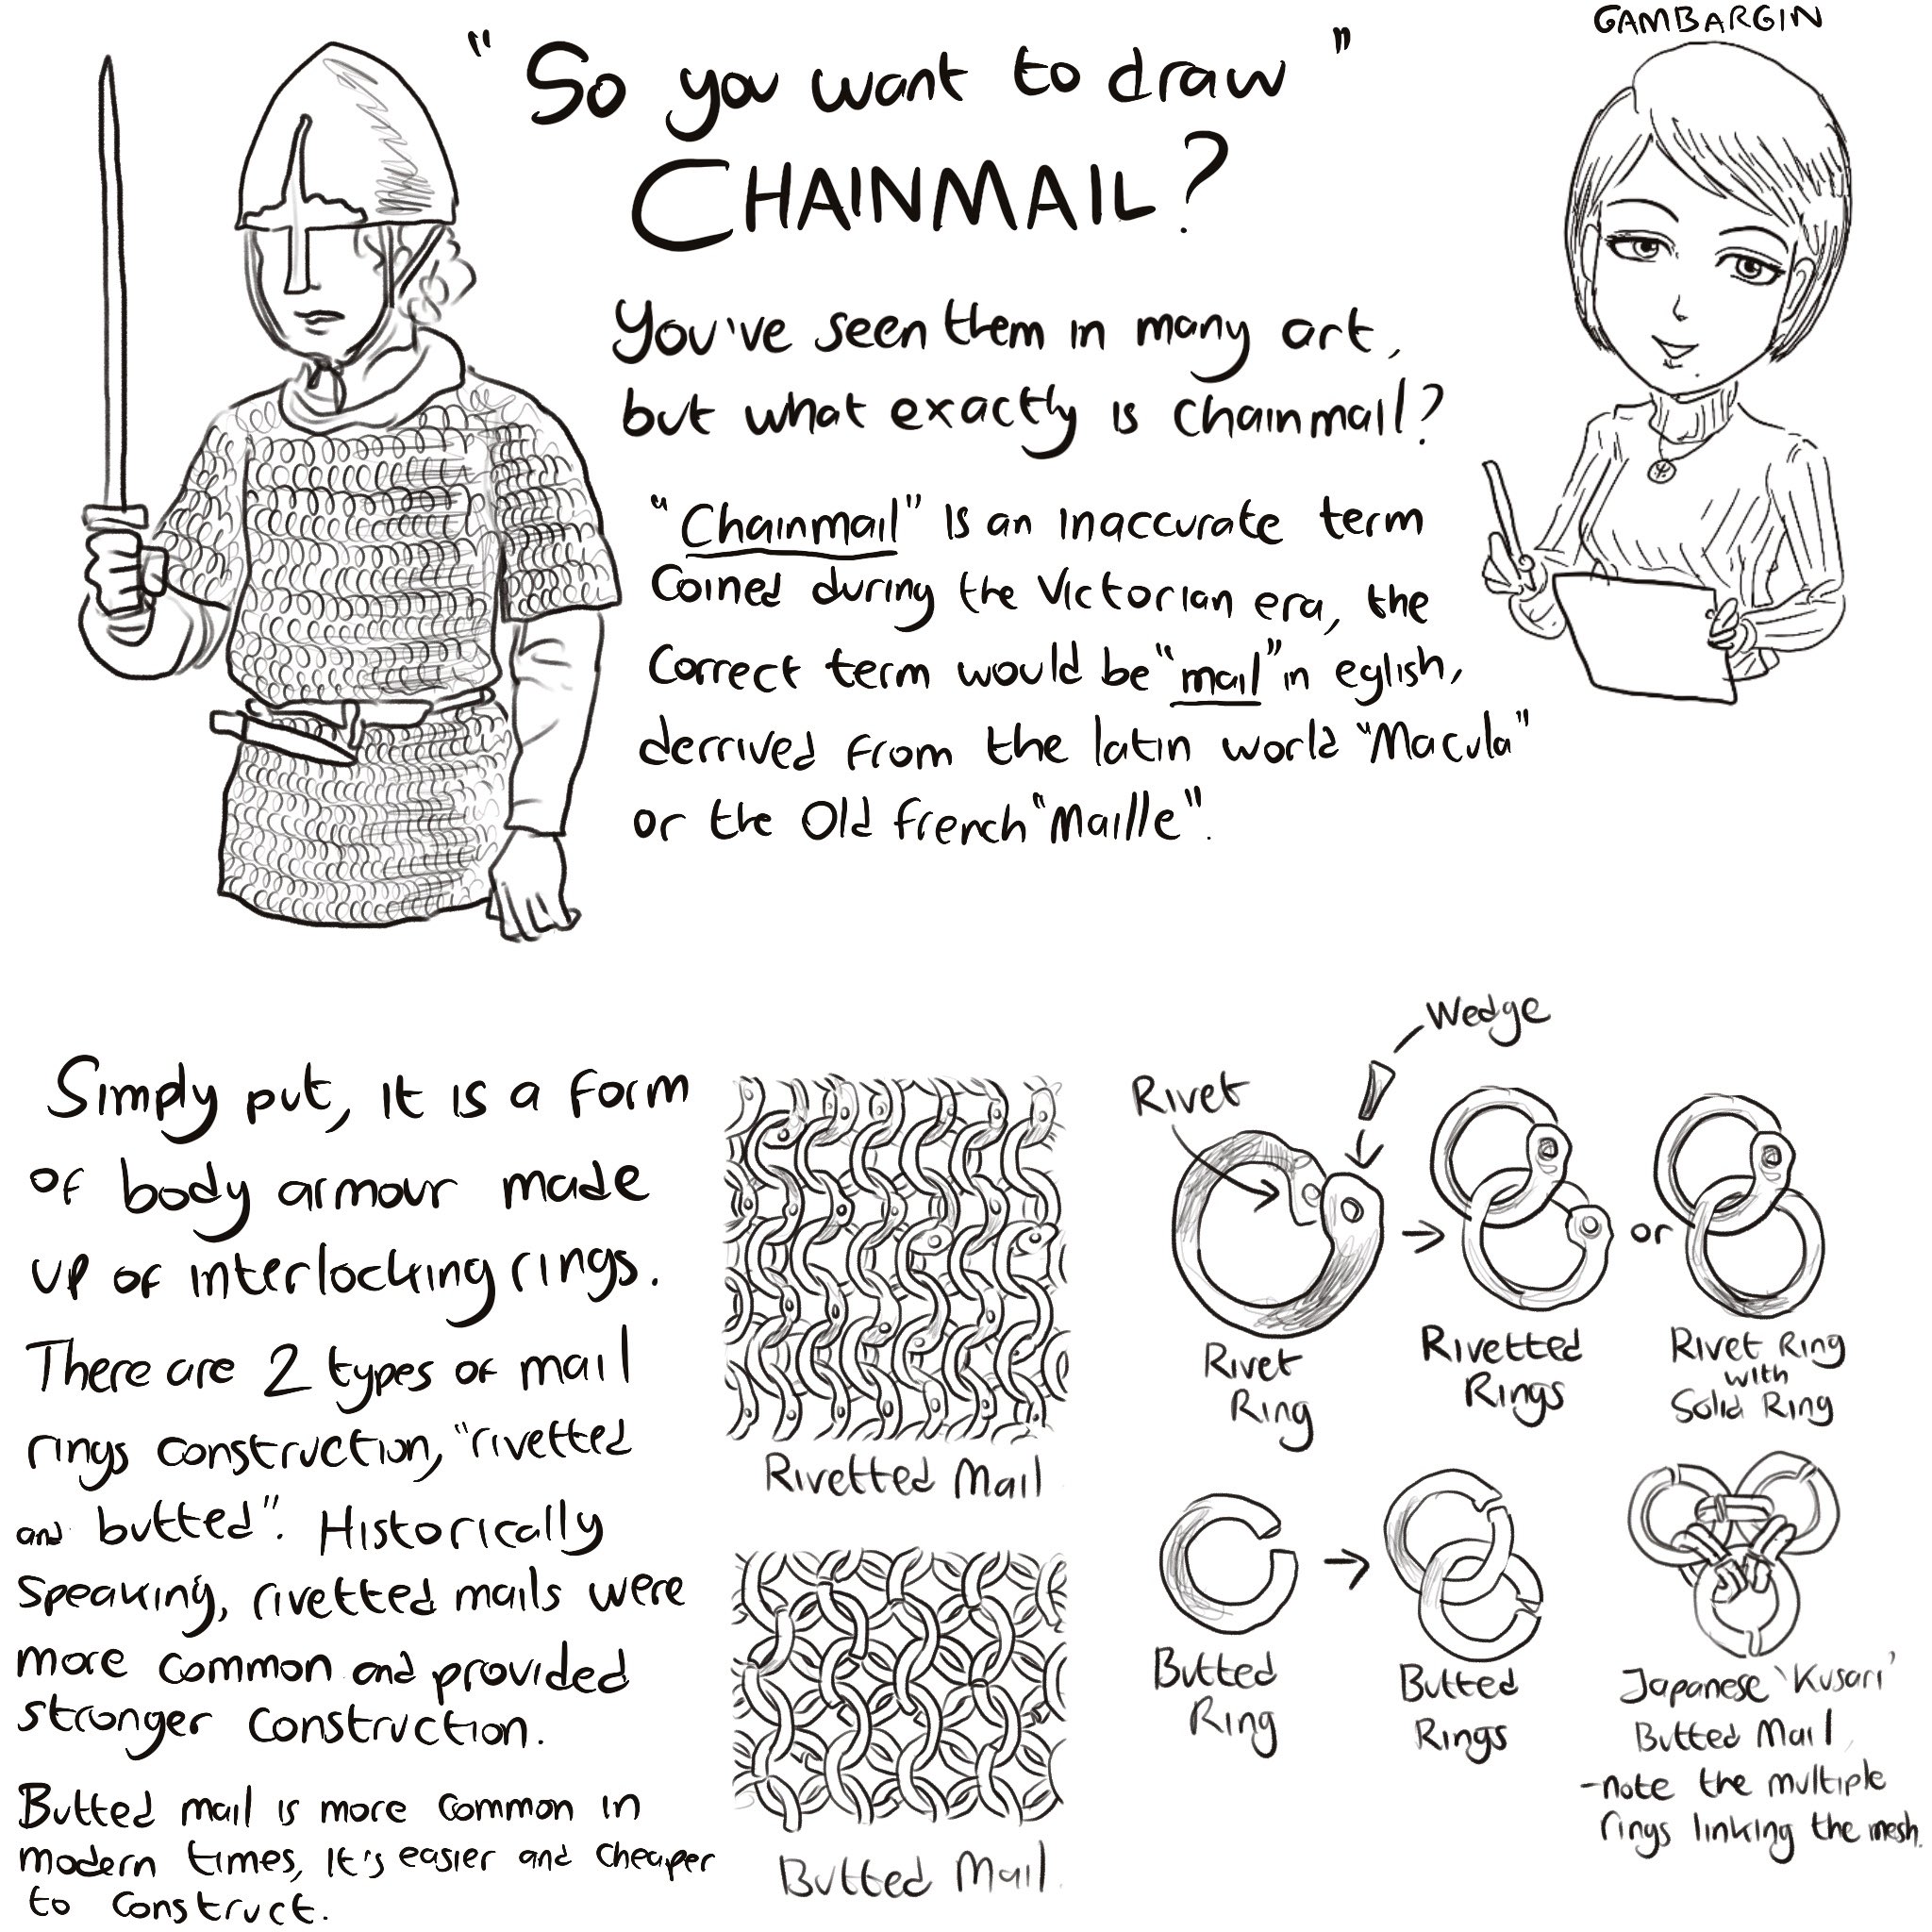 GAMBARGIN
"So you want to draw"
CHAINMAIL?
You've seen them in many art,
but what exactly is chainmail?
"Chainmail" Is an inaccurate term
Coined during the Victorian era, the
Correct term would be "mail" in eglish,
derrived from the latin world "Macula"
or the Old french "Maille".
Simply put, it is a form
of body armour made
up of interlocking rings.
There are 2 types of mail
rings construction, "rivetted
and butted". Historically
Speaking, rivetted mails were
more common and provided
stronger construction.
Butted mail is more common in
modern times, it's easier and cheaper
to construct.
Rivetted Mail
Butted Mail
Wedge
Rivet
or
Rivet
Ring
Rivetted
Rings
Rivet Ring
with
Solid Ring
Butted
Ring
Butted
Rings
Japanese 'Kusari'
Butted Mail
-note the multiple
rings linking the mesh.